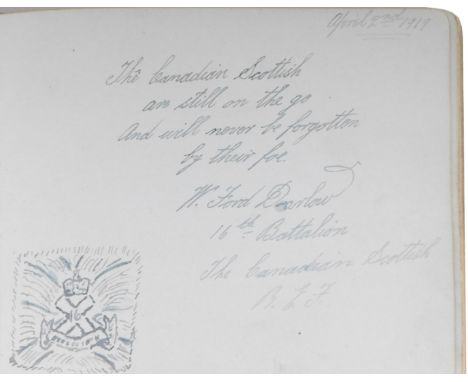 April 22nd 1917
The Canadian Scottish
are still on the go
And will never be forgotten
by their foe.
W. Ford Dearlow
16th Battalion
The Canadian Scottish
B. E. F
16